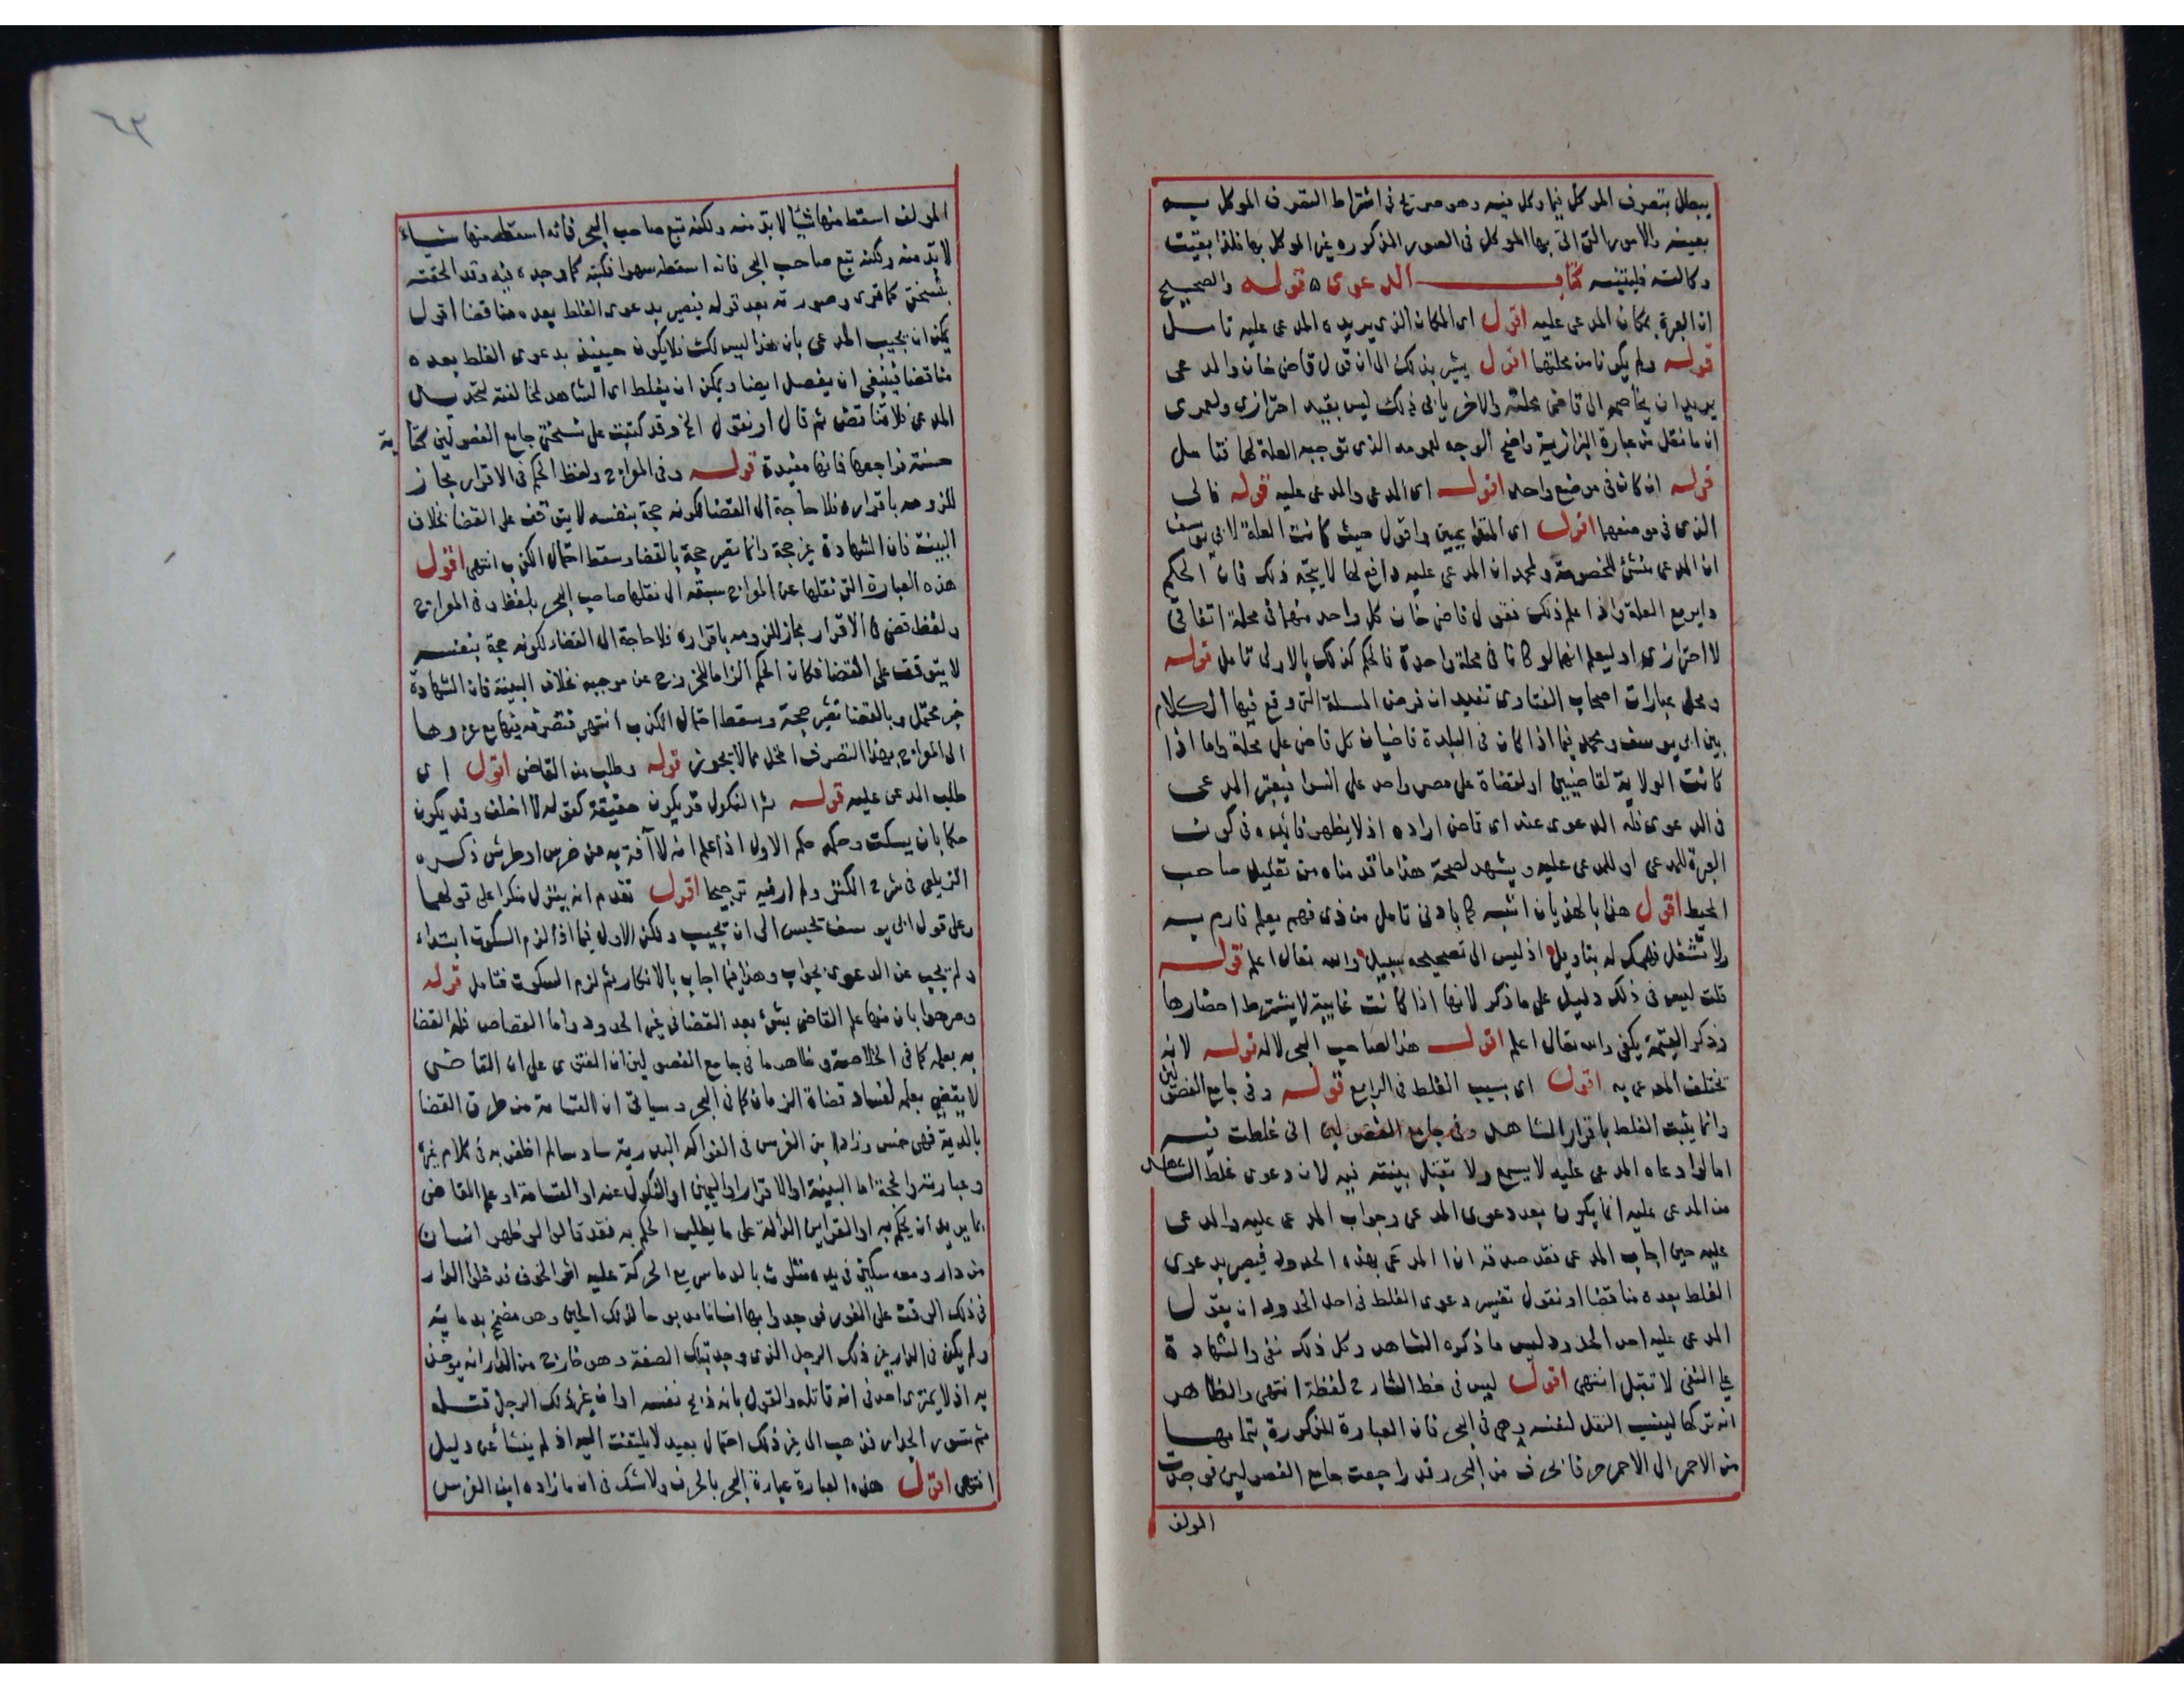 يبطل بتصرف الموكل فيما وكل فيه وهو صريح في اشتراط التصرف الموكل به
بعينه والامور التي اتى بها الموكل في الصور المذكورة غير الموكل بها فلذا بقيت
وكالته فليتنبه كتاب الدعوى ه قوله والصحيح
ان العبرة بمكان المدعى عليه اقول اى المكان الذي يريده المدعى عليه تامل
قوله ولم يكونا من محلتهما اقول يشير بذلك الى ان قول قاضى خان والمدعى
يريد ان يخاصمه الى قاضى محلته والاخر يأبى ذلك ليس بقيد احترازي ولعمرى
ان ما نقل من عبارة البزازية واضح الوجه لعمومه الذي توجبه العلة لهما فتامل
قوله ان كان في موضع واحد اقول اى المدعى والمدعى عليه قوله فالى
الذى في موضعهما اقول اى المتقاربين واقول حيث كانت العلة لابي يوسف
ان المدعى منشئ للخصومة ولمحمد ان المدعى عليه دافع لها لا يتجه ذلك فان الحكم
داير مع العلة واذا علم ذلك فقول قاضى خان كل واحد منهما في محلة اتفاقي
لا احترازي او ليعلم انهما لو كانا في محلة واحدة فالحكم كذلك بالاولى تامل قوله
وعلى عبارات اصحاب الفتاوى تفيد ان فرض المسلة التي وقع فيها الكلام
بين ابي يوسف ومحمد فيما اذا كان في البلدة قاضيان كل قاض على محلة واما اذا
كانت الولاية لقاضيين او لقضاة على مصر واحد على السوا فيعتبر المدعى
في الدعوى فله الدعوى عند اى قاض اراده اذ لا يظهر فائده في كون
العبرة للمدعى او للمدعى عليه ويشهد لصحة هذا ما قدمناه من تعليل صاحب
المحيط اقول هذا بالهذيان اشبه كما بادنى تامل من ذى فهم يعلم فارم به
ولا تشغل فهمك له بتاويل اذ ليس الى تصحيحه سبيل والله تعالى اعلم قوله
قلت ليس في ذلك دليل على ما ذكر لانها اذا كانت غايبة لا يشترط احضارها
وذكر القيمة يكفى والله تعالى اعلم اقول هذا لصاحب البحر لا له قوله لانه
تختلف المدعى به اقول اى بسبب الغلط في الرابع قوله وفي جامع الفصولين
وانما يثبت الغلط باقرار الشاهد وفي جامع الفصولين انى غلطت فيه
اما لو ادعاه المدعى عليه لا يسمع ولا تقبل بينته فيه لان دعوى غلط الشاهد
من المدعى عليه انما يكون بعد دعوى المدعى وجواب المدعى عليه والمدعى
عليه حين اجاب المدعى فقد صدقه ان المدعى بهذه الحدود فيصير بدعوى
الغلط بعده مناقضا او نقول تفسير دعوى الغلط في احد الحدود ان يقول
المدعى عليه احد الحدود ليس ما ذكره الشاهد وكل ذلك نفى والشهادة
على النفى لا تقبل انتهى اقول ليس في خط الشارح لفظة انتهى والظاهر
انه تركها لينسب النقل لنفسه وهى في البحر فان العبارة المذكورة بتمامها
من الاحمر الى الاحمر حرفا بحرف من البحر وقد راجعت جامع الفصولين فوجدت
المولف
٦٣
المولف اسقط منها شيئا لا بد منه ولكنه تبع صاحب البحر فانه اسقط منها شياء
لا بد منه ولكنه تبع صاحب البحر فانه اسقطه سهوا فكتبه كما وجده فيه وقد الحقته
بنسختى كما ترى وصورته بعد قوله فيصير بدعوى الغلط بعده مناقضا اقول
يمكن ان يجيب المدعى بان هذا ليس لك فلا يكون حينيذ بدعوى الغلط بعده
مناقضا فينبغي ان يفصل ايضا ويمكن ان يغلط اى الشاهد لمخالفته لتحديد
المدعى فلا تناقض ثم قال او نقول الخ وقد كتبت على نسختى جامع الفصولين كتابة
حسنة فراجعها فانها مفيدة قوله وفي المواج ولفظ الحكم في الاقرار مجاز
للزومه باقراره فلا حاجة الى القضا لكونه حجة بنفسه لا يتوقف على القضا بخلاف
البينة فان الشهادة غير حجة وانما تصير حجة بالقضا وسقط احتمال الكذب انتهى اقول
هذه العبارة التي نقلها عن المواج سبقه الى نقلها صاحب البحر بلفظ وفي المواج
ولفظ قضى في الاقرار مجاز للزومه باقراره فلا حاجة الى القضاء لكونه حجة بنفسه
لا يتوقف على القضا فكان الحكم الزاما للخروج عن موجبه بخلاف البينة فان الشهادة
خبر محتمل وبالقضا تصير حجة وسقط احتمال الكذب انتهى فتصرفه فيها مع عزوها
الى المواج بهذا التصرف المخل مما لا يجوز قوله وطلب من القاضى اقول اى
طلب المدعى عليه قوله ثم النكول قد يكون حقيقة كقوله لا احلف وقد يكون
حكما بان يسكت وحكمه حكم الاول اذا علم انه لا آفة به من خرس او طرش ذكره
الزيلعى في شرح الكنز ولم ار فيه ترجيحا اقول تقدم انه ينزل منكرا على قولهما
وعلى قول ابي يوسف يحبس الى ان يجيب ولكن الاول فيما اذا لزم السكوت ابتداء
ولم يجب عن الدعوى بجواب وهذا فيما اجاب بالانكار ثم لزم السكوت فتامل قوله
وصرحوا بان منها علم القاضى بشئ بعد القضا في غير الحدود واما القصاص فله القضا
به بعلمه كما في الخلاصة وظاهر ما في جامع الفصولين ان الفتوى على ان القاضى
لا يقضي بعلمه لفساد قضاة الزمان كما في البحر وسياتى ان القسامة من طرق القضا
بالدية فهى خمس وزاد ابن الغرس في الفواكه البدرية سادسا لم اظفر به في كلام غيره
وعبارته والحجة اما البينة او الاقرار او اليمين او النكول عنه او القسامة او علم القاضى
بما يريد ان يحكم به او القراين الدالة على ما يطلب الحكم به فقد قالوا لو ظهر انسان
من دار ومعه سكين في يده متلوث بالدما سريع الحركة عليه اثر الخوف فدخلوا الدار
في ذلك الوقت على الفور فوجدوا بها انسانا مذبوحا لذلك الحين وهو مضمخ بدمايه
ولم يكن في الدار غير ذلك الرجل الذى وجد بتلك الصفة وهو خارج من الدار انه يوخذ
به اذ لا يمترى احد في انه قاتله والقول بانه ذبح نفسه او ان غير ذلك الرجل قتله
ثم تسور الجدار فذهب الى غير ذلك احتمال بعيد لا يلتفت اليه اذ لم ينشأ عن دليل
انتهى اقول هذه العبارة عبارة البحر بالحرف ولا شك في ان ما زاده ابن الغرس